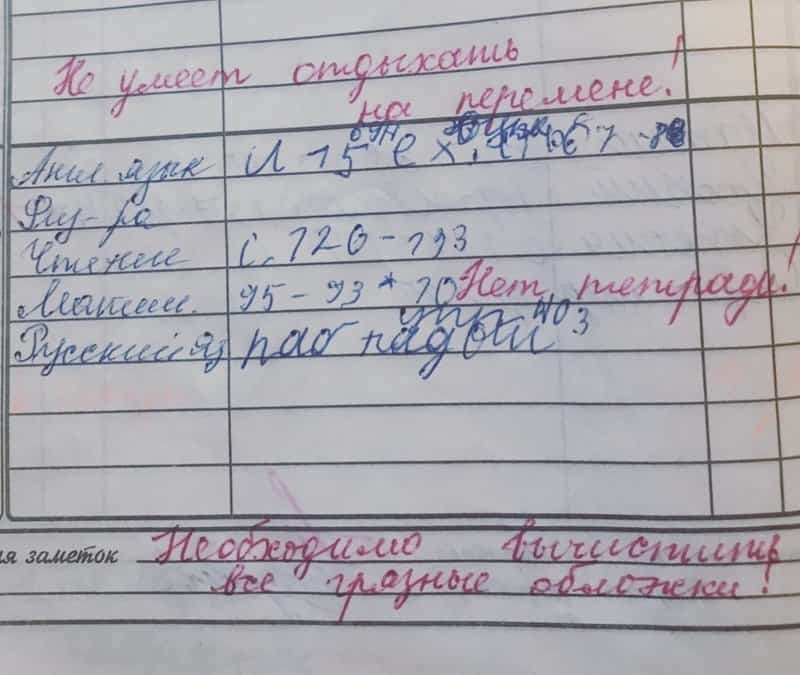 Не умеет отдыхать
на перемене!
Англ. язык
Физ-ра
Чтение с. 120 - 133
Матем. 95 - 93 * 10 Нет тетради!
Русский яз раб упр 403
ля заметок Необходимо вычистить
все грязные обложки!